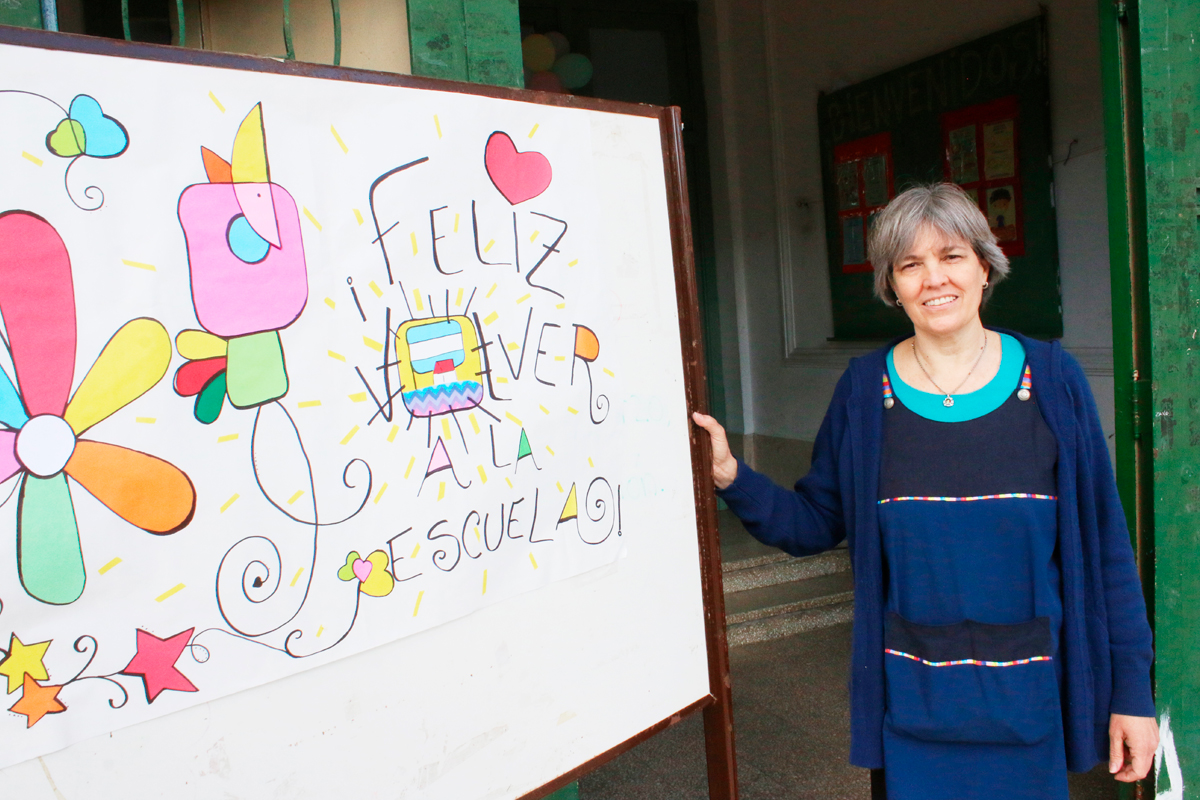 ¡FELIZ
VOLVER
A LA
ESCUELA!
BIENVENIDOS!